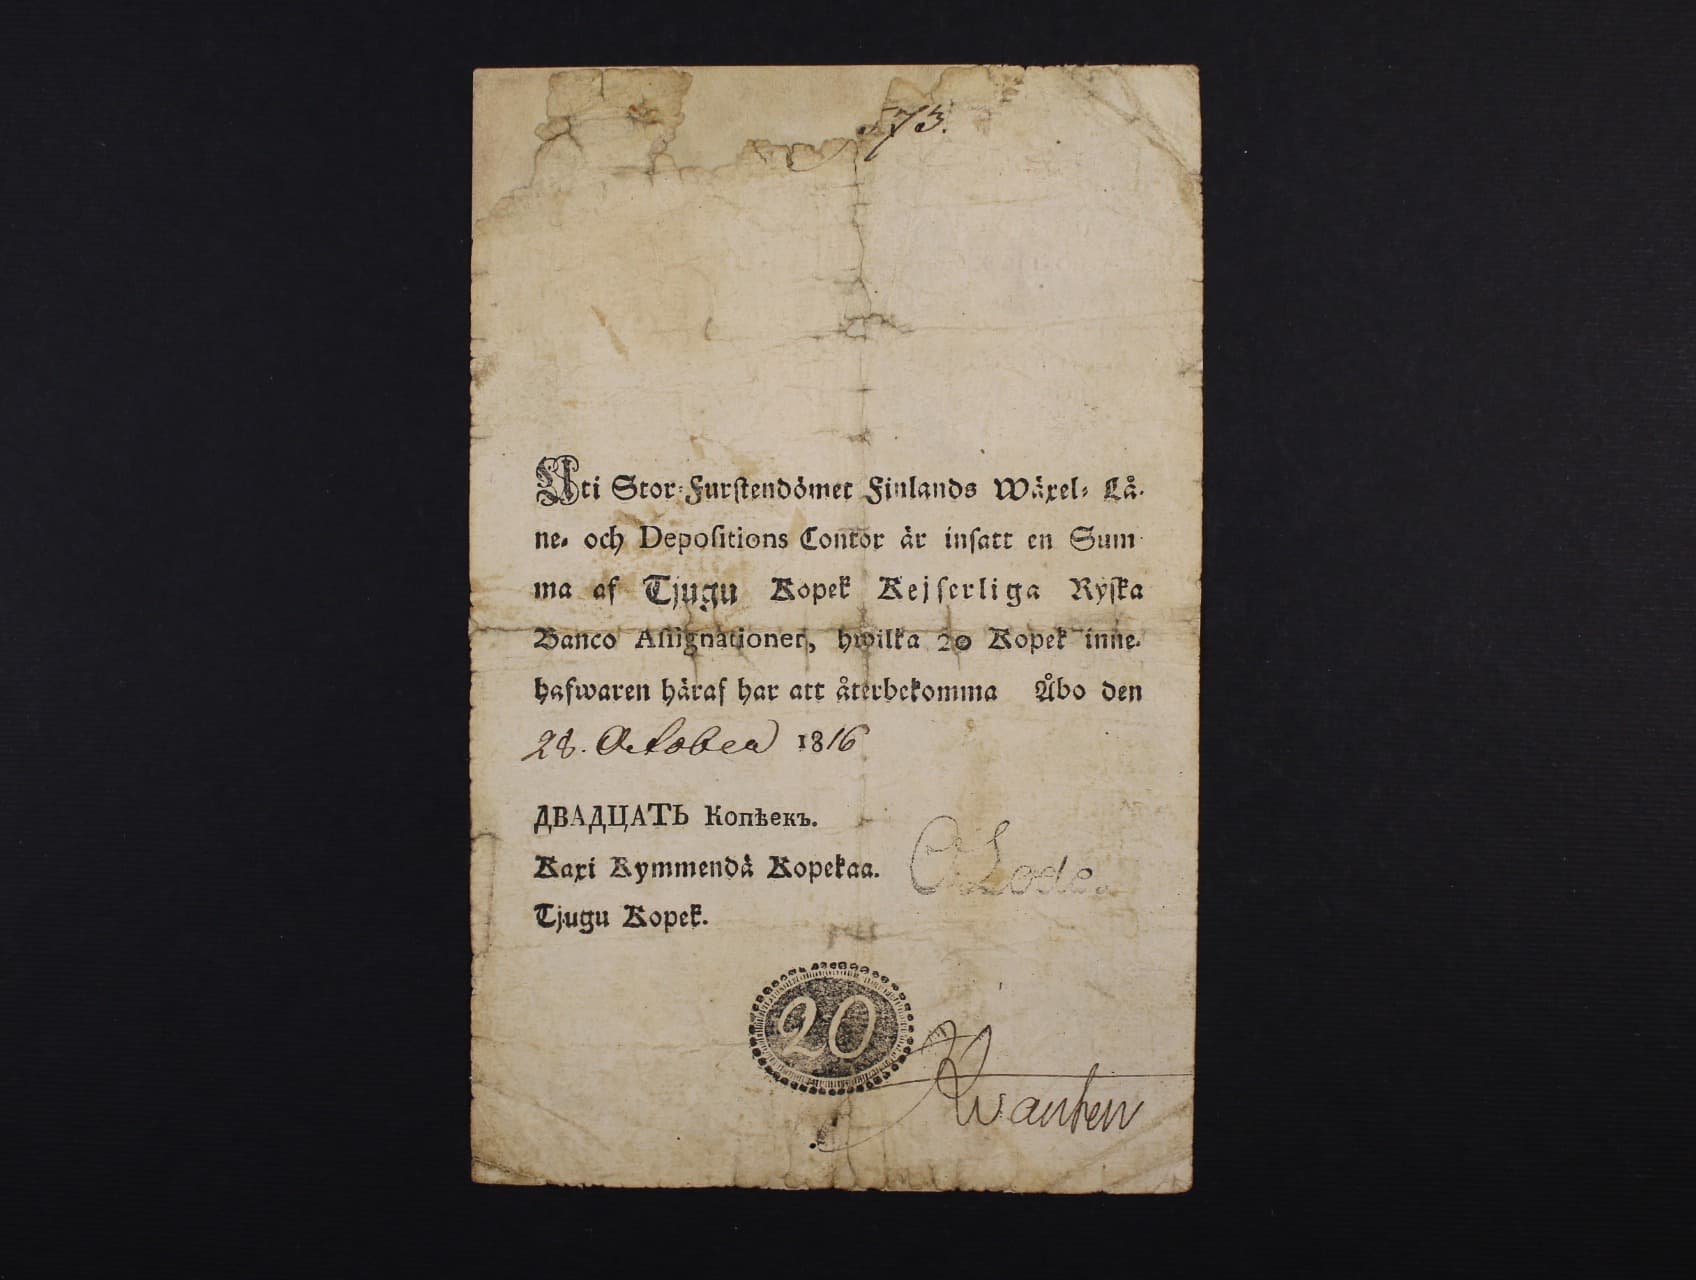 573.
Uti Stor-Furstendömet Finlands Wäxel- Lå-
ne- och Depositions Contor är insatt en Sum-
ma af Tjugu Kopek Kejserliga Ryska
Banco Assignationer, hwilka 20 Kopek inne-
hafwaren häraf har att återbekomma Åbo den
28. October 1816
ДВАДЦАТЬ Копѣекъ.
Kaxi Kymmendä Kopekaa.
Tjugu Kopek.
20